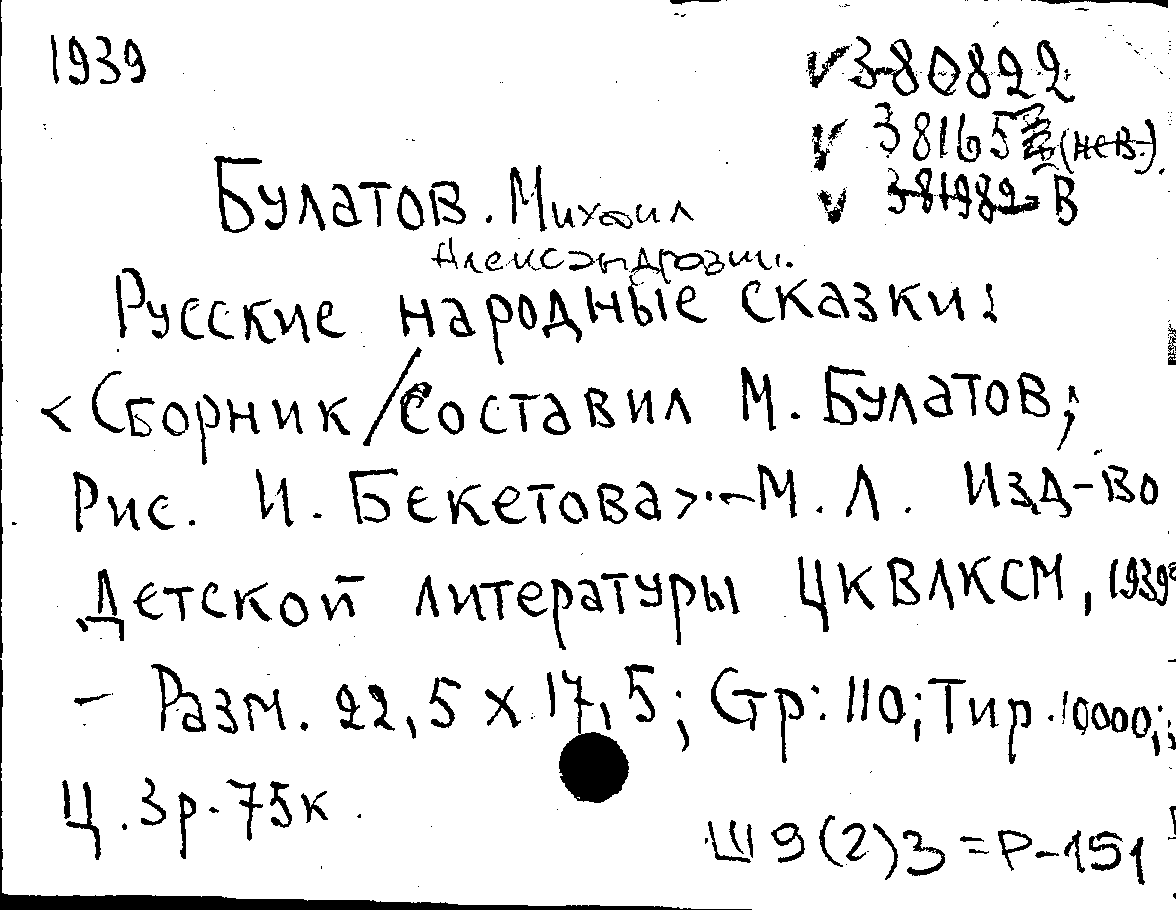 1939
✓ 380822
✓ 38165 (нев.)
✓ 381982 В
Булатов. Михаил
Александрович.
Русские народные сказки:
<Сборник/составил М. Булатов;
Рис. И. Бекетова>.-М. Л. Изд-во
Детской литературы ЦКВЛКСМ, 1939
- Разм. 22,5 х 17,5; Стр: 110; Тир. 10000;
Ц. 3р. 75к.
Ш9(2)3=Р-151